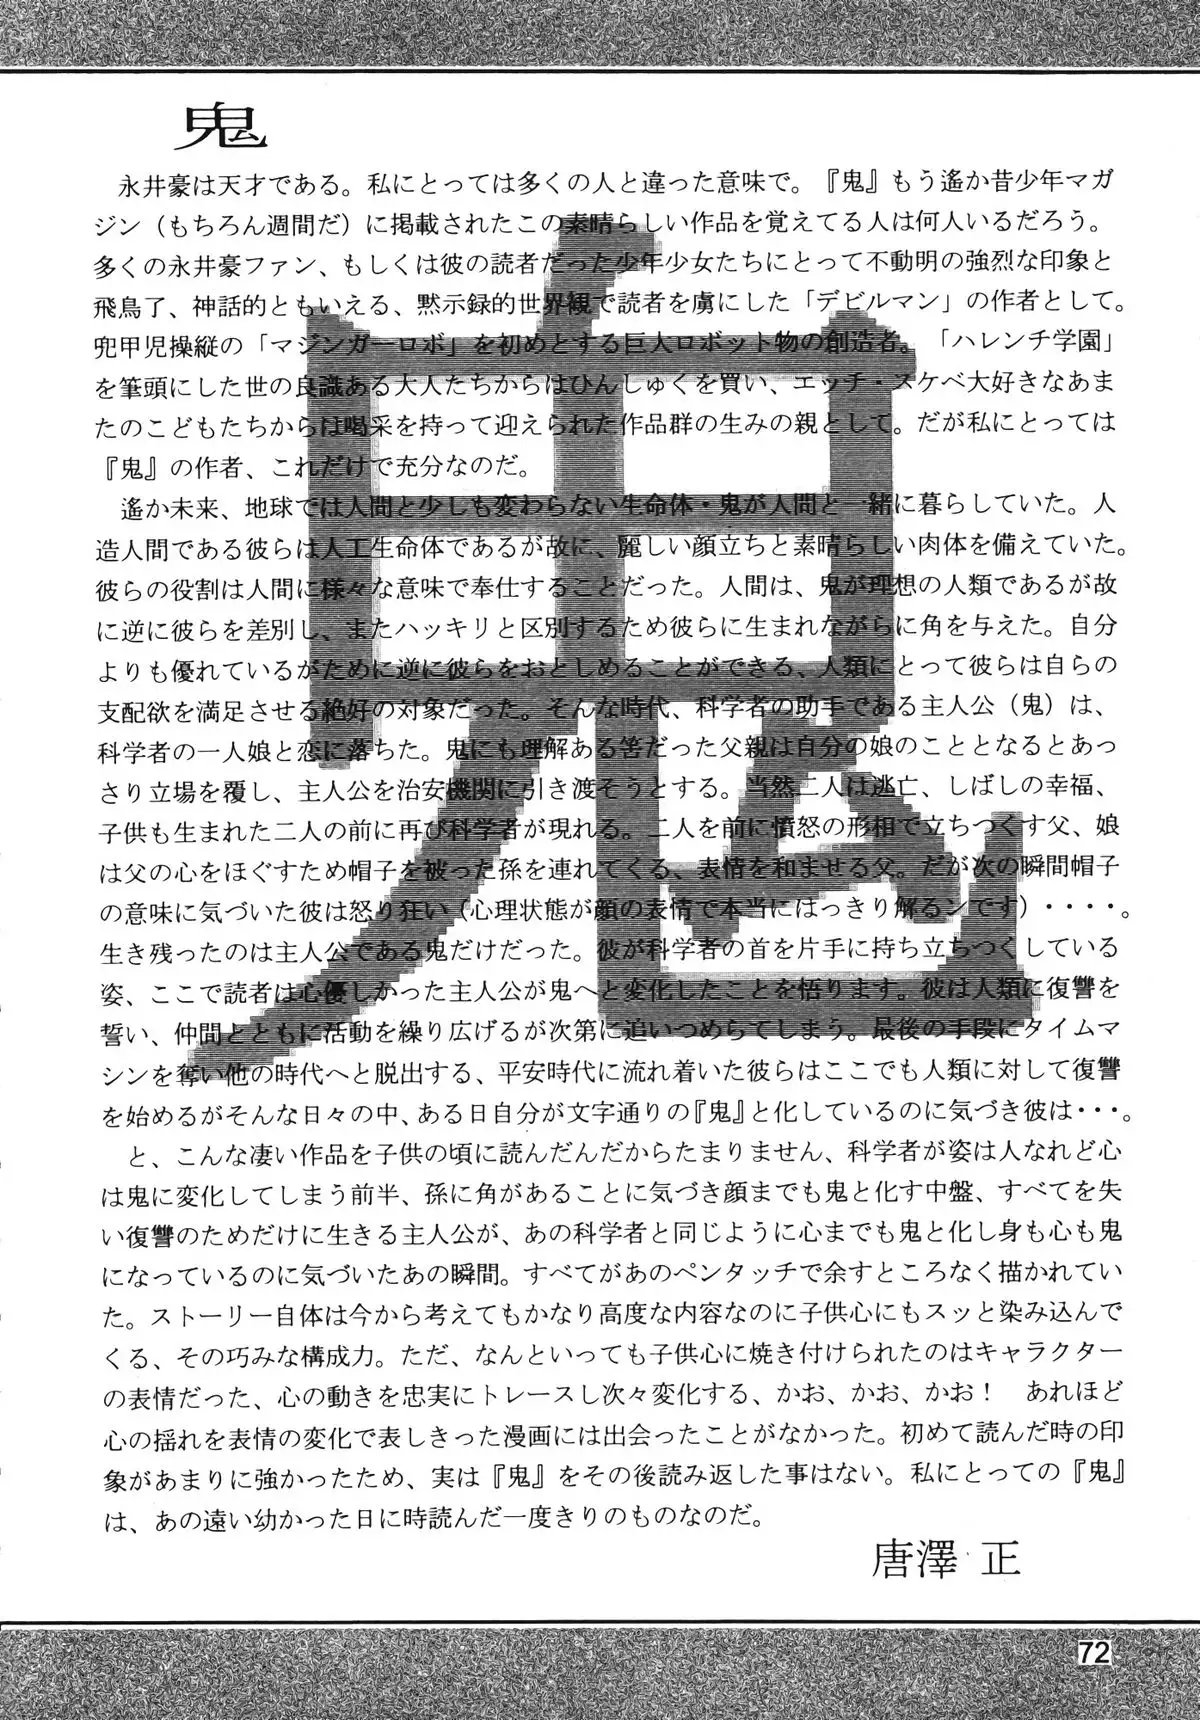 鬼
永井豪は天才である。私にとっては多くの人と違った意味で。『鬼』もう遙か昔少年マガ
ジン（もちろん週間だ）に掲載されたこの素晴らしい作品を覚えてる人は何人いるだろう。
多くの永井豪ファン、もしくは彼の読者だった少年少女たちにとって不動明の強烈な印象と
飛鳥了、神話的ともいえる、黙示録的世界観で読者を虜にした「デビルマン」の作者として。
兜甲児操縦の「マジンガーロボ」を初めとする巨人ロボット物の創造者。「ハレンチ学園」
を筆頭にした世の良識ある大人たちからはひんしゅくを買い、エッチ・スケベ大好きなあま
たのこどもたちからは喝采を持って迎えられた作品群の生みの親として。だが私にとっては
『鬼』の作者、これだけで充分なのだ。
遙か未来、地球では人間と少しも変わらない生命体・鬼が人間と一緒に暮らしていた。人
造人間である彼らは人工生命体であるが故に、麗しい顔立ちと素晴らしい肉体を備えていた。
彼らの役割は人間に様々な意味で奉仕することだった。人間は、鬼が理想の人類であるが故
に逆に彼らを差別し、またハッキリと区別するため彼らに生まれながらに角を与えた。自分
よりも優れているがために逆に彼らをおとしめることができる、人類にとって彼らは自らの
支配欲を満足させる絶好の対象だった。そんな時代、科学者の助手である主人公（鬼）は、
科学者の一人娘と恋に落ちた。鬼にも理解ある筈だった父親は自分の娘のこととなるとあっ
さり立場を覆し、主人公を治安機関に引き渡そうとする。当然二人は逃亡、しばしの幸福、
子供も生まれた二人の前に再び科学者が現れる。二人を前に憤怒の形相で立ちつくす父、娘
は父の心をほぐすため帽子を被った孫を連れてくる、表情を和ませる父。だが次の瞬間帽子
の意味に気づいた彼は怒り狂い（心理状態が顔の表情で本当にはっきり解るンです）・・・・。
生き残ったのは主人公である鬼だけだった。彼が科学者の首を片手に持ち立ちつくしている
姿、ここで読者は心優しかった主人公が鬼へと変化したことを悟ります。彼は人類に復讐を
誓い、仲間とともに活動を繰り広げるが次第に追いつめらてしまう。最後の手段にタイムマ
シンを奪い他の時代へと脱出する、平安時代に流れ着いた彼らはここでも人類に対して復讐
を始めるがそんな日々の中、ある日自分が文字通りの『鬼』と化しているのに気づき彼は・・・。
と、こんな凄い作品を子供の頃に読んだんだからたまりません、科学者が姿は人なれど心
は鬼に変化してしまう前半、孫に角があることに気づき顔までも鬼と化す中盤、すべてを失
い復讐のためだけに生きる主人公が、あの科学者と同じように心までも鬼と化し身も心も鬼
になっているのに気づいたあの瞬間。すべてがあのペンタッチで余すところなく描かれてい
た。ストーリー自体は今から考えてもかなり高度な内容なのに子供心にもスッと染み込んで
くる、その巧みな構成力。ただ、なんといっても子供心に焼き付けられたのはキャラクター
の表情だった、心の動きを忠実にトレースし次々変化する、かお、かお、かお！　あれほど
心の揺れを表情の変化で表しきった漫画には出会ったことがなかった。初めて読んだ時の印
象があまりに強かったため、実は『鬼』をその後読み返した事はない。私にとっての『鬼』
は、あの遠い幼かった日に時読んだ一度きりのものなのだ。
唐澤 正
72
鬼